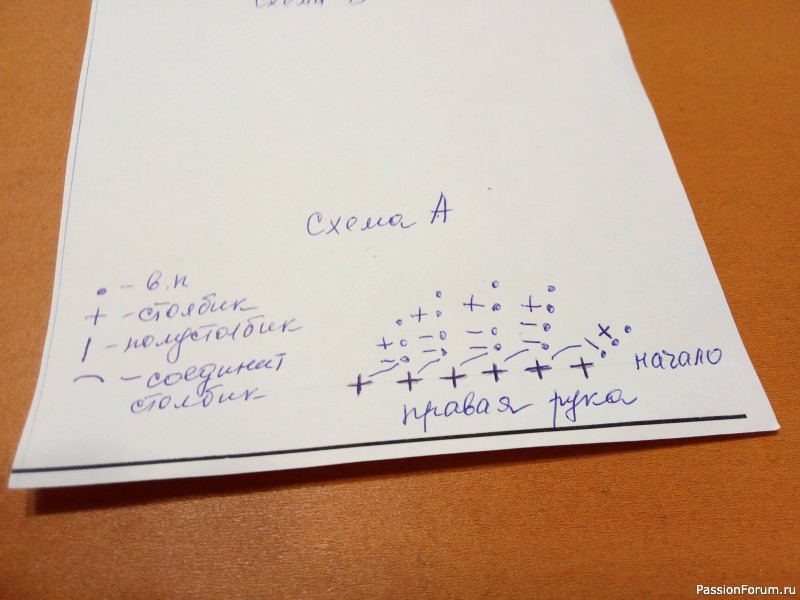 Схема А
• - в.п
+ - столбик
| - полустолбик
⌒ - соединит
столбик
начало
правая рука
PassionForum.ru